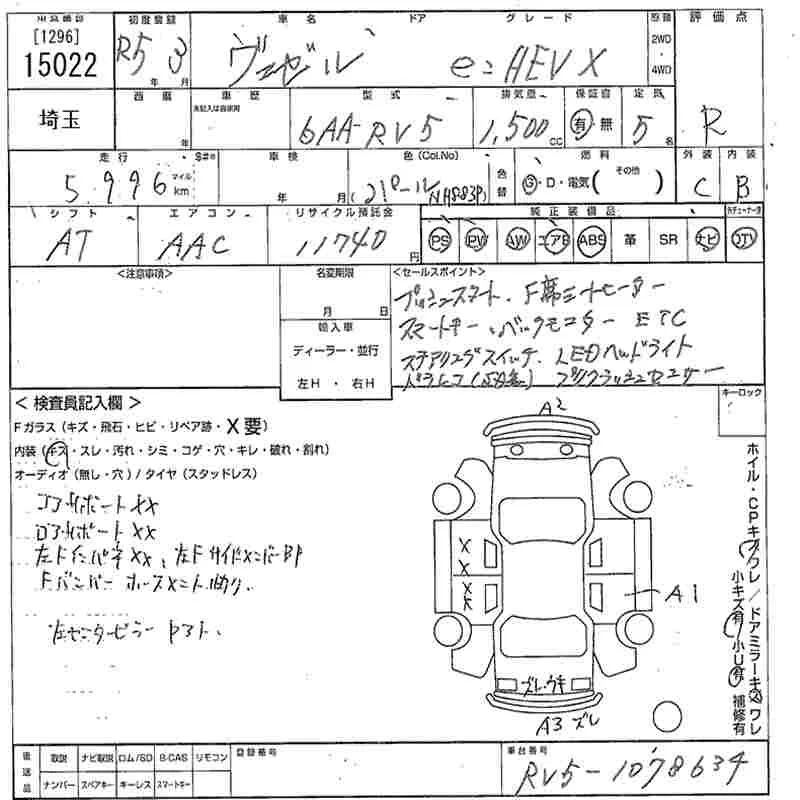 [1296]
15022
初度登録 車名 ドア グレード 評価点
R5 3 ヴェゼル e:HEV X 2WD・4WD
年 月
埼玉
西暦 車歴 型式 排気量 保証書 定員
未記入は自家用
6AA-RV5 1,500cc 有 無 5名 R
年
走行 車検 色(Col.No) 燃料 外装 内装
5,996 マイル km 年 月 パール NH883P 色替 G・D・電気( その他 ) C B
シフト エアコン リサイクル預託金 純正装備品
AT AAC 11740円 PS PW AW エアB ABS 革 SR ナビ TV
<注意事項> 名変期限 <セールスポイント>
月 日
プッシュスタート、F席シートヒーター
スマートキー、バックモニター ETC
ステアリングスイッチ、LEDヘッドライト
輸入車
ディーラー・並行
左H ・ 右H
キーロック
< 検査員記入欄 >
Fガラス(キズ・飛石・ヒビ・リペア跡・X要)
内装(キズ・スレ・汚れ・シミ・コゲ・穴・キレ・破れ・割れ)
オーディオ(無し・穴)/タイヤ(スタッドレス)
XX
XX
左FインパネXX、左FサイドメンバーBP
Fバンパー ホースメント曲り、
左センターピラー
A2
X
X
X
X
A1
ズレ・ウキ
A3 ズレ
ホイル・CPキズワレ/ドアミラーキズワレ
小キズ有 小U有 補修有
後送品 取説 ナビ取説 ロム/SD B-CAS リモコン 登録番号 車台番号
ナンバー スペアキー キーレス スマートキー RV5-1078634